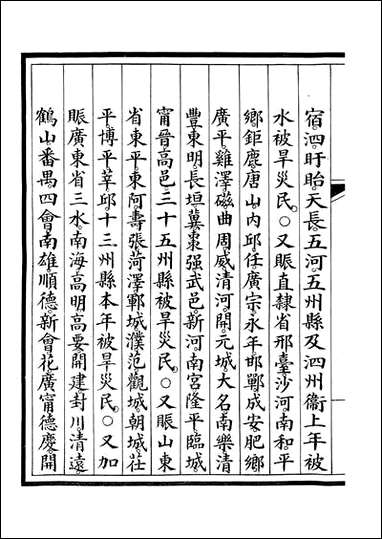 宿泗盱眙天長五河五州縣及泗州衞上年被
水被旱災民○又賑直隸省邢臺沙河南和平
鄉鉅鹿唐山內邱任廣宗永年邯鄲成安肥鄉
廣平雞澤磁曲周威清河開元城大名南樂清
豐東明長垣冀棗强武邑新河南宮隆平臨城
甯晉高邑三十五州縣被旱災民○又賑山東
省東平東阿壽張菏澤鄆城濮范觀城朝城茌
平博平莘邱十三州縣本年被旱災民○又加
賑廣東省三水南海高明高要開建封川清遠
鶴山番禺四會南雄順德新會花廣甯德慶開